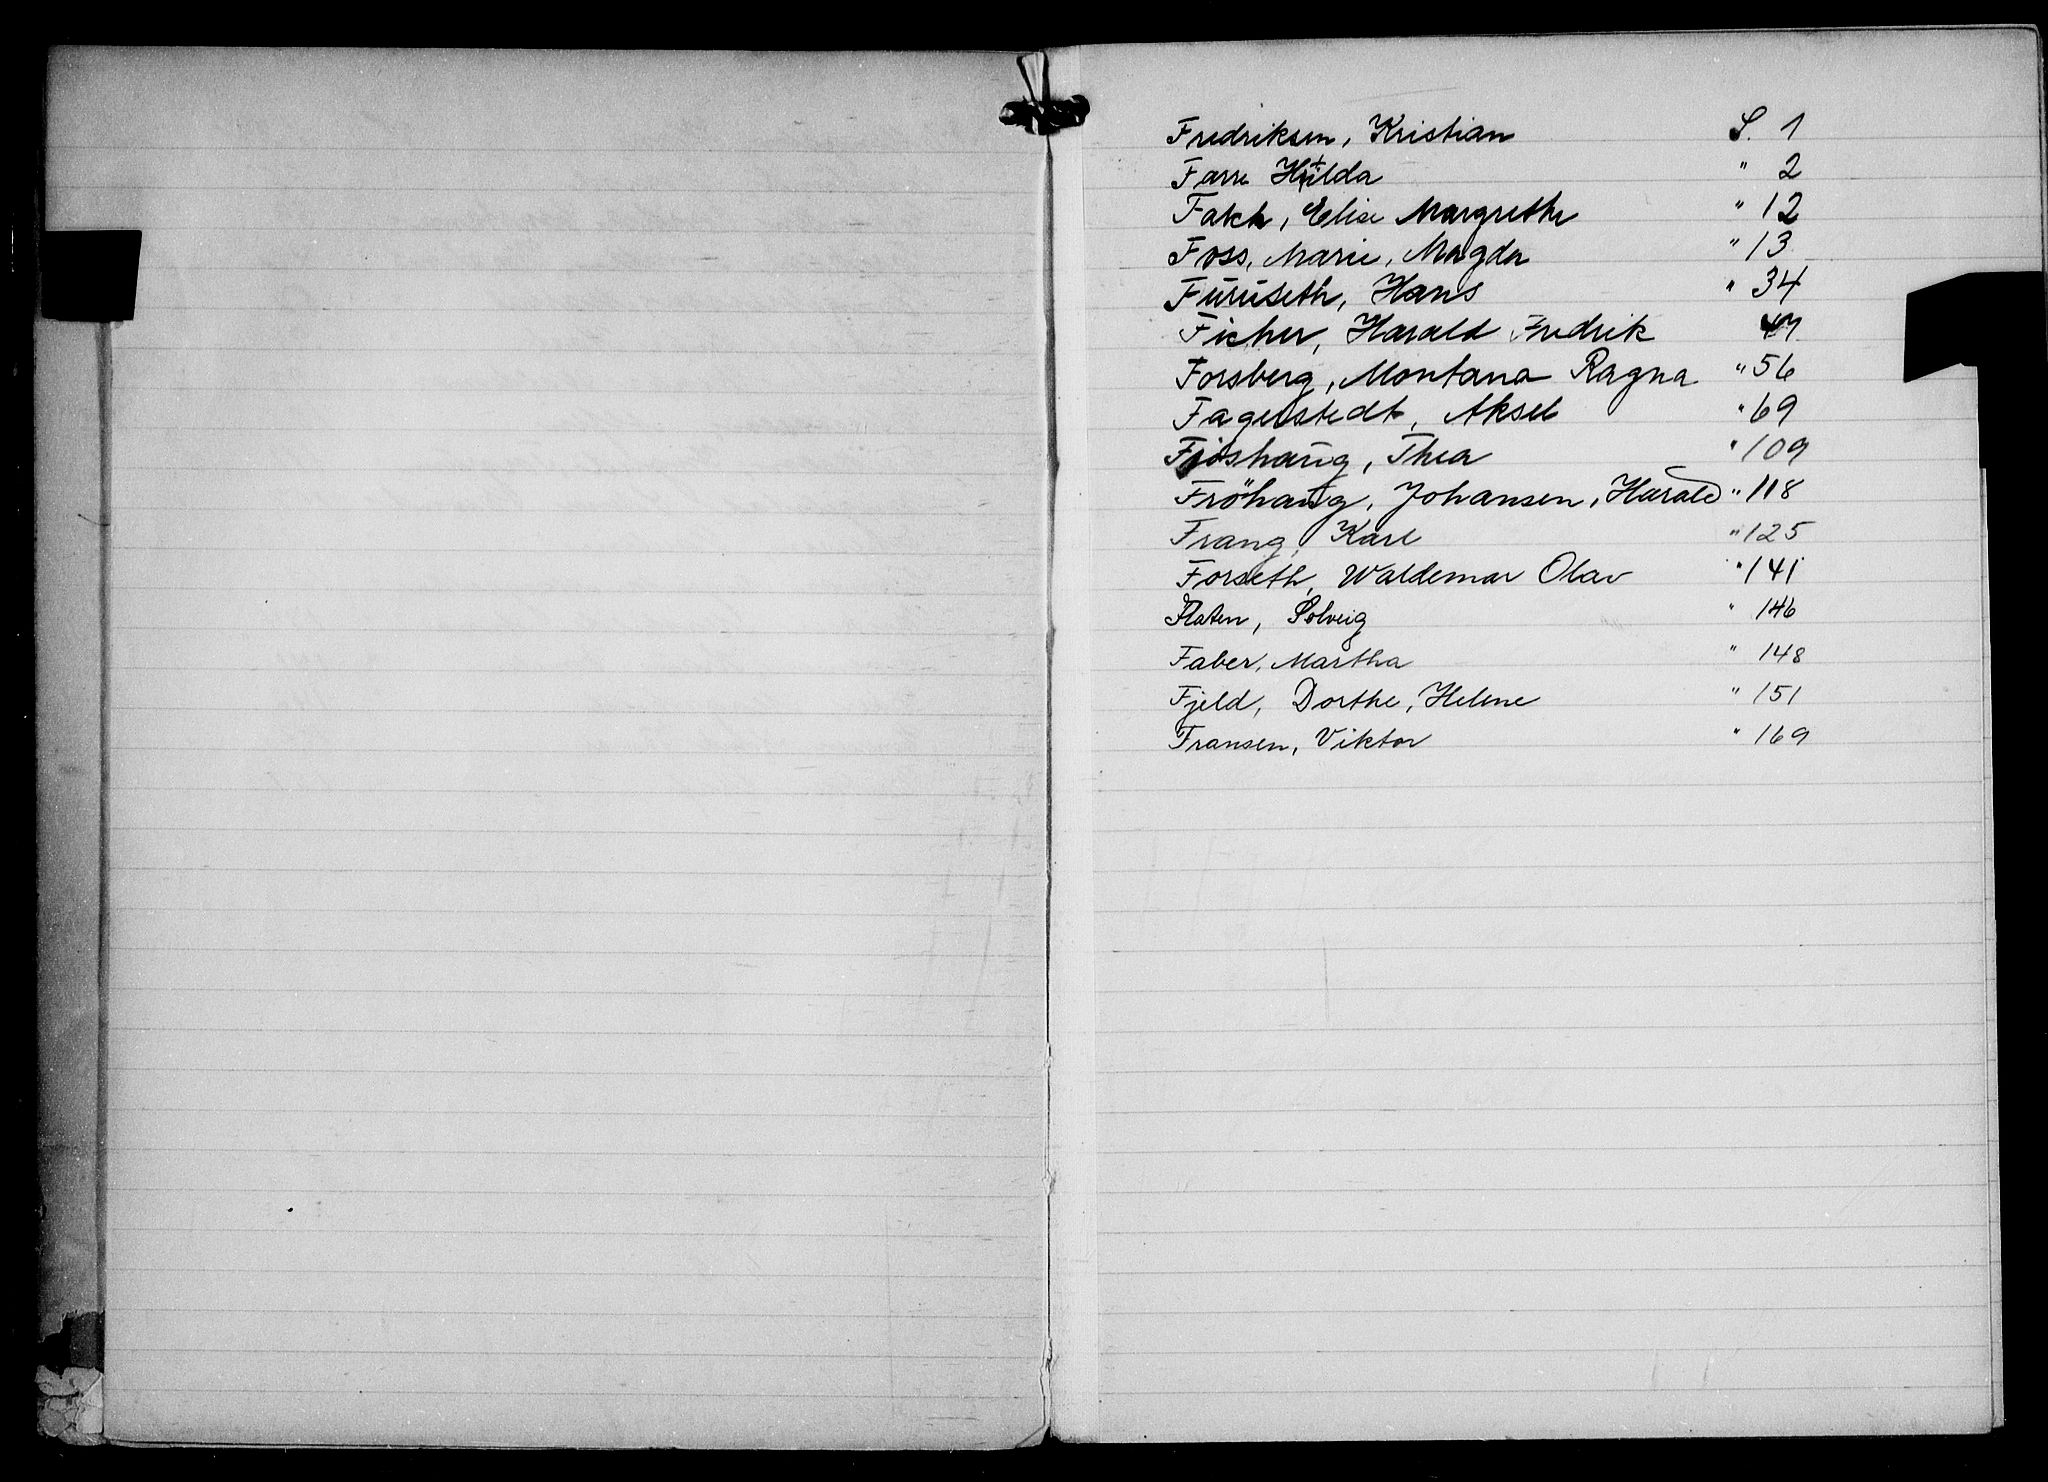 Fredriksen, Kristian S. 1
Farre Hilda " 2
Fakh, Elise Margrethe " 12
Foss, Marie, Magda " 13
Furuseth, Hans " 34
Ficher, Harald Fredrik 47
Forsberg, Montana Ragna " 56
Fagerstedt, Aksel " 69
Fjøshaug, Thea " 109
Fröhaug, Johansen, Harald " 118
Frang, Karl " 125
Forseth, Waldemar Olav " 141
Flaten, Solveig " 146
Faber, Martha " 148
Fjeld, Dorthe, Helene " 151
Fransen, Viktor " 169